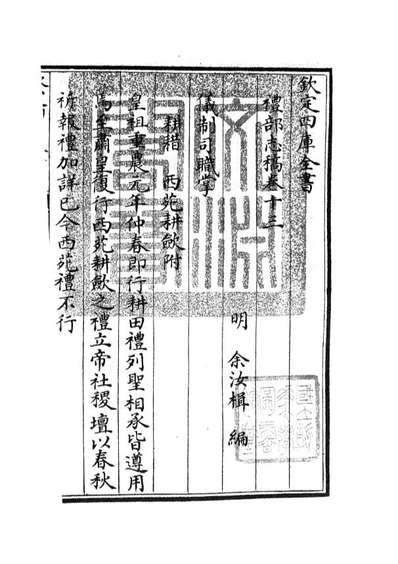 欽定四庫全書
禮部志稿卷十三
明 余汝楫 編
儀制司職掌
耕耤 西苑耕歛附
皇祖重農元年仲春即行耕田禮列聖相承皆遵用
焉至肅皇復行西苑耕歛之禮立帝社稷壇以春秋
祈報禮加詳已今西苑禮不行